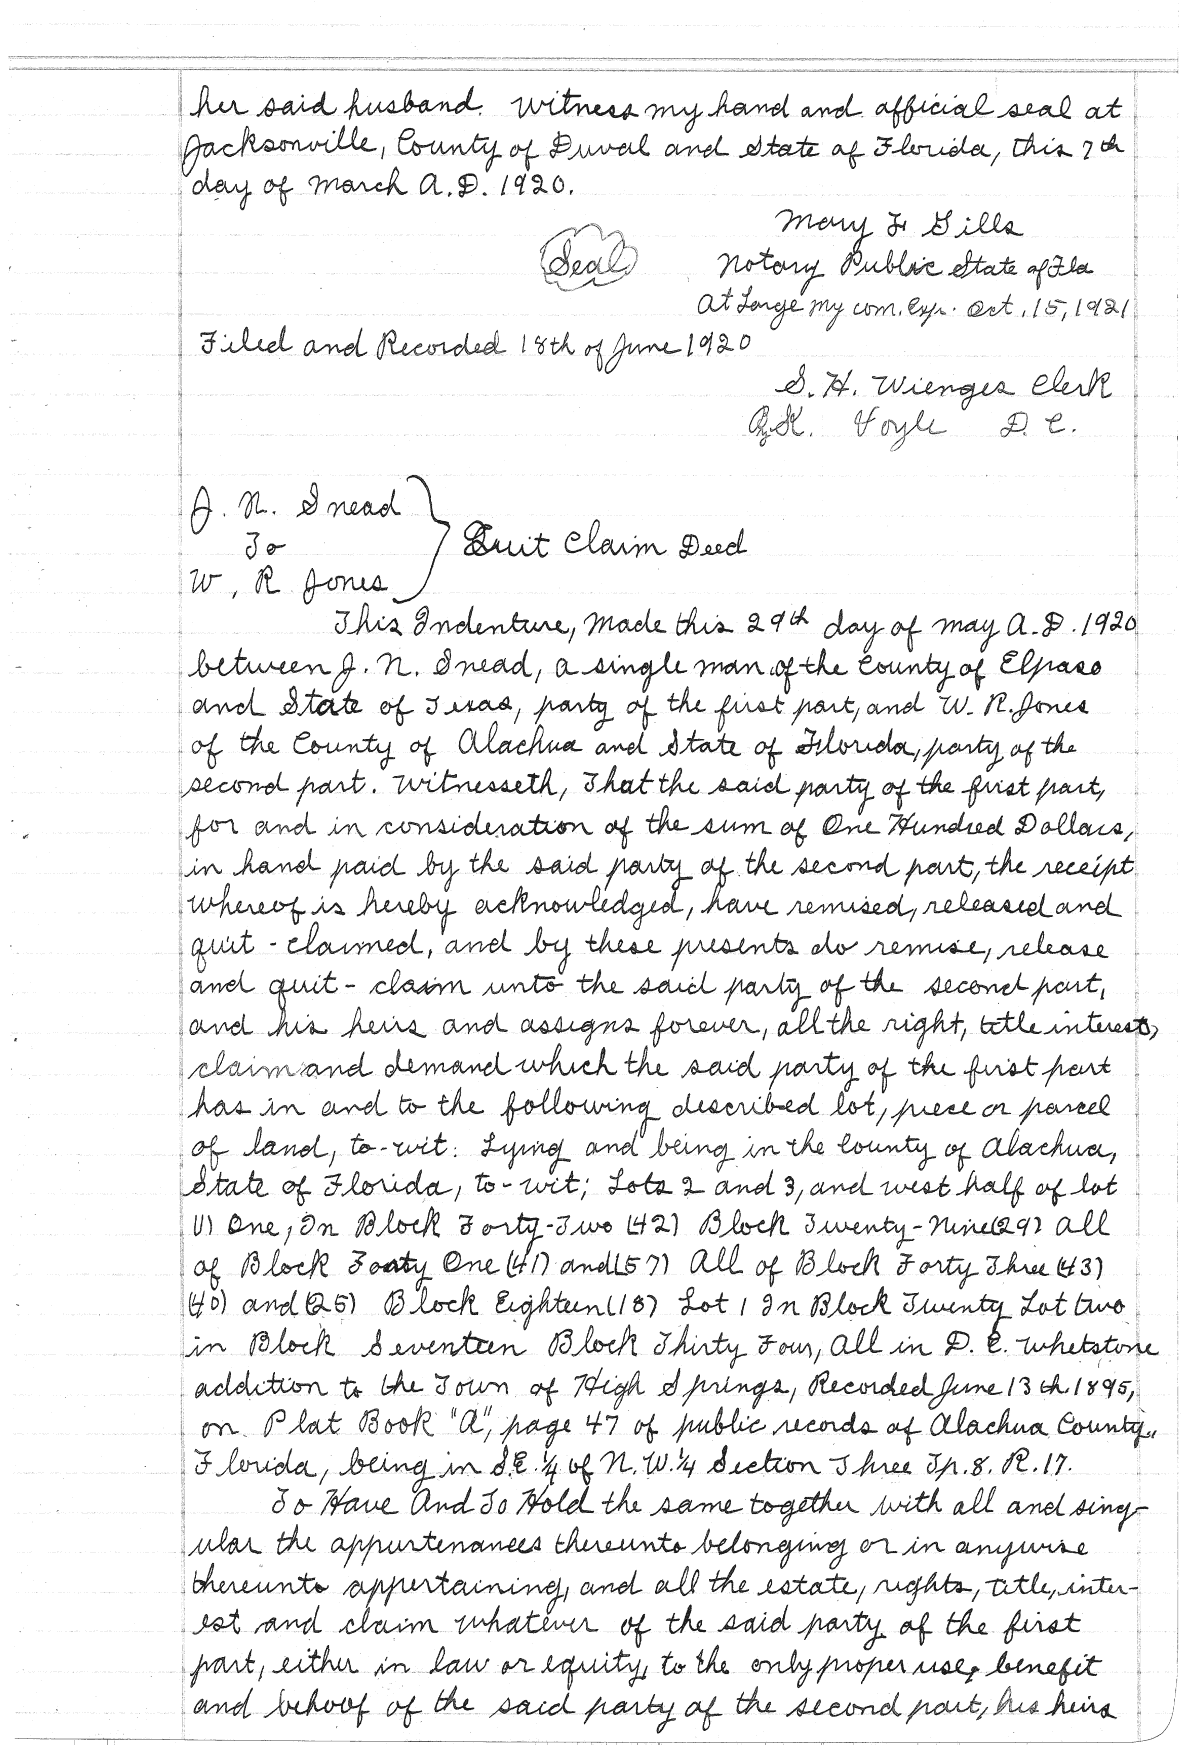 her said husband. Witness my hand and official seal at
Jacksonville, County of Duval and State of Florida, this 7th
day of March A.D. 1920.
Mary F Gills
(Seal) Notary Public State of Fla
At Large My com. Exp. Oct. 15, 1921
Filed and Recorded 18th of June 1920
S. H. Wienges Clerk
Voyle D. C.
J. N. Snead
To
Quit Claim Deed
W. R Jones
This Indenture, Made this 29th day of May A.D. 1920
between J. N. Snead, a single man of the County of Elpaso
and State of Texas, party of the first part, and W. R. Jones
of the County of Alachua and State of Florida, party of the
second part. Witnesseth, That the said party of the first part,
for and in consideration of the sum of One Hundred Dollars,
in hand paid by the said party of the second part, the receipt
whereof is hereby acknowledged, have remised, released and
quit-claimed, and by these presents do remise, release
and quit-claim unto the said party of the second part,
and his heirs and assigns forever, all the right, title interest,
claim and demand which the said party of the first part
has in and to the following described lot, piece or parcel
of land, to-wit: Lying and being in the County of Alachua,
State of Florida, to-wit; Lots 2 and 3, and west half of lot
(1) One, In Block Forty-Two (42) Block Twenty-Nine (29) All
of Block Foaty One (41) and (57) All of Block Forty Three (43)
(40) and (25) Block Eighteen (18) Lot 1 In Block Twenty Lot two
in Block Seventeen Block Thirty Four, All in D. E. Whetstone
addition to the Town of High Springs, Recorded June 13th. 1895,
on Plat Book "A", page 47 of public records of Alachua County,
Florida, being in S.E. 1/4 of N.W. 1/4 Section Three Tp. 8. R. 17.
To Have And To Hold the same together with all and sing-
ular the appurtenances thereunto belonging or in anywise
thereunto appertaining, and all the estate, rights, title, inter-
est and claim whatever of the said party of the first
part, either in law or equity, to the only proper use, benefit
and behoof of the said party of the second part, his heirs